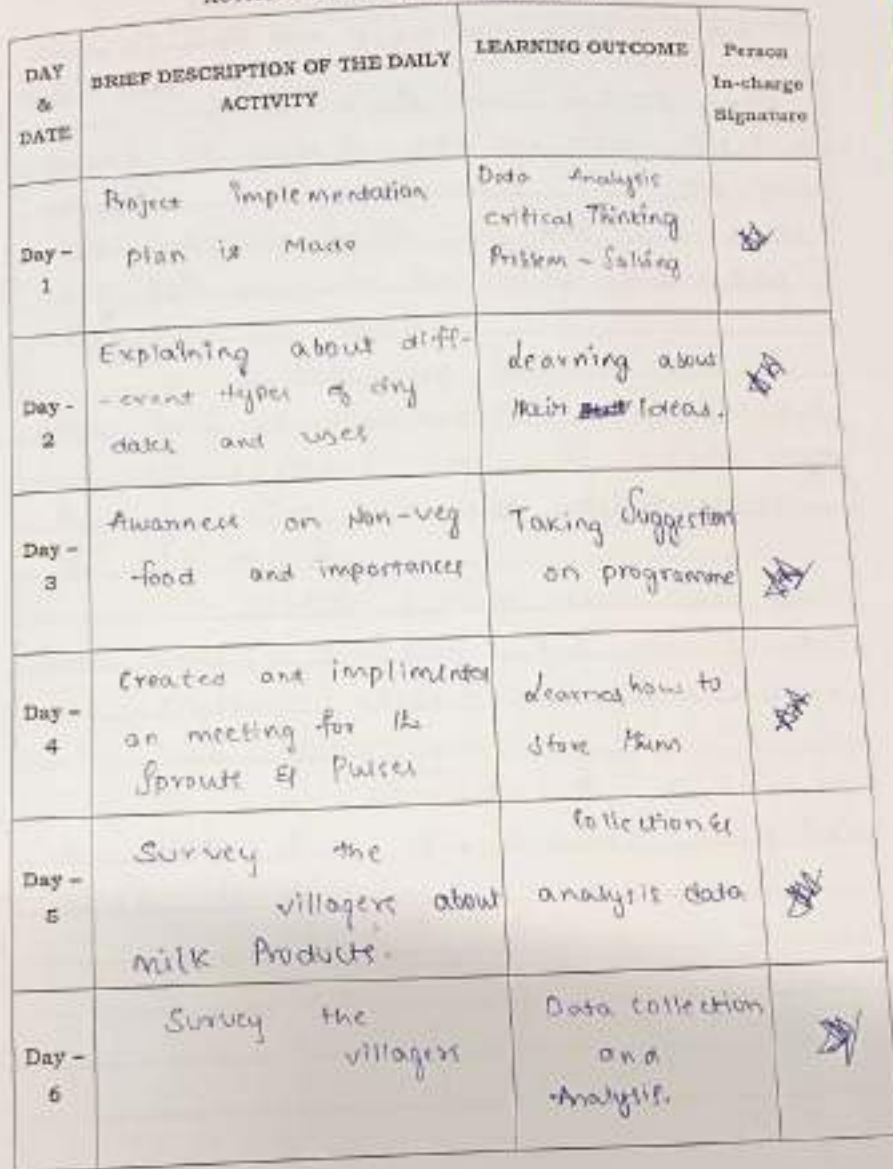 DAY & DATE
BRIEF DESCRIPTION OF THE DAILY
ACTIVITY
LEARNING OUTCOME
Person
In-charge
Signature
Day -
1
Project implementation
plan is Made
Data Analysis
critical Thinking
Problem - Solving
Day -
2
Explaining about diff-
-erent types of dry
dates and uses
Learning about
their Ideas.
Day -
3
Awarness on Non-veg
food and importances
Taking Suggestion
on programme
Day -
4
Created and implimented
an meeting for the
Sprouts & Pulses
Learned how to
store them
Day -
5
Survey the
villagers about
milk Products.
Collection &
analysis data
Day -
6
Survey the
villagers
Data collection
and
Analysis.